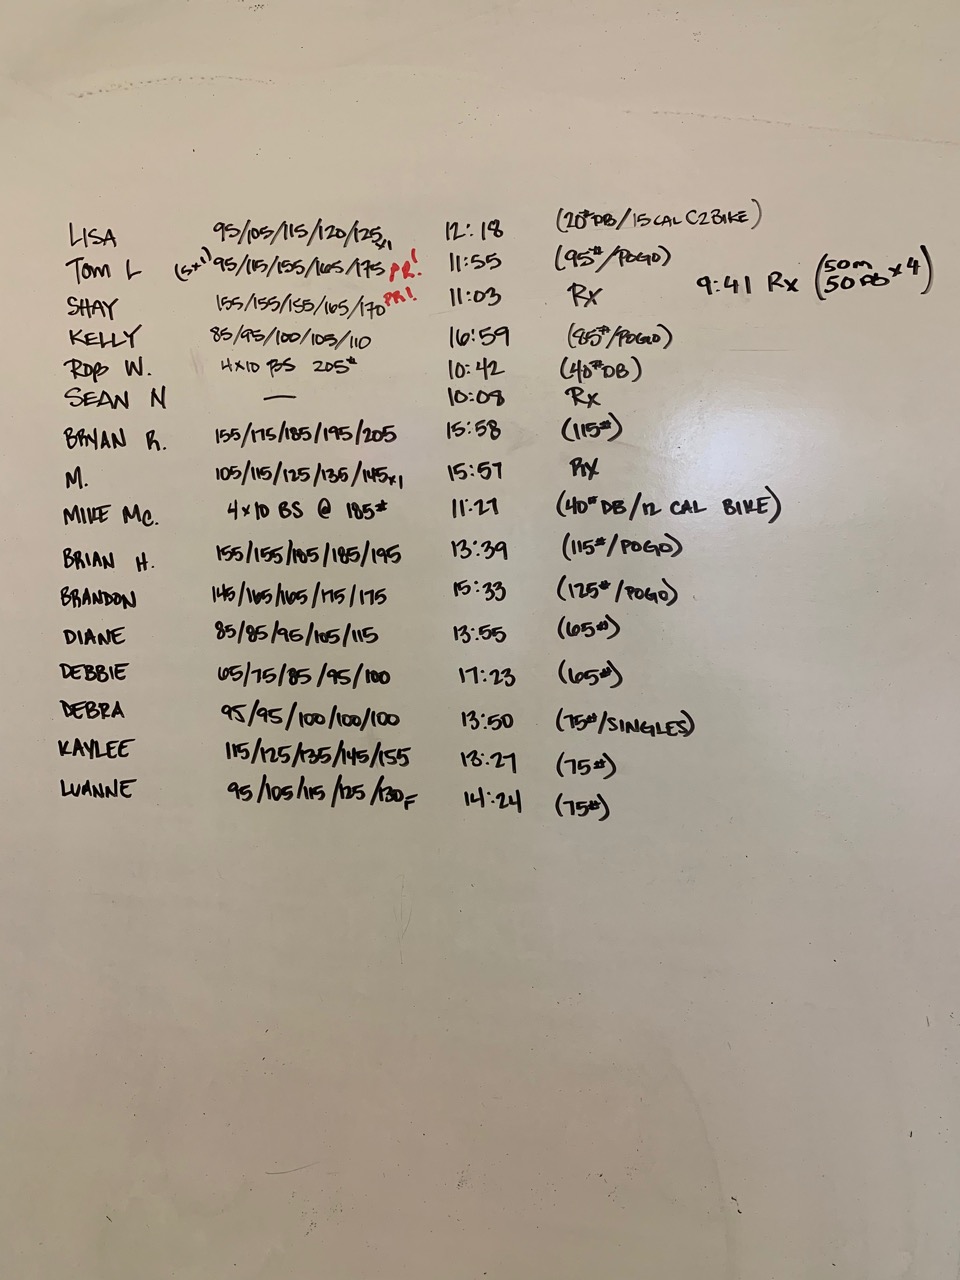 LISA 95/105/115/120/125x1 12:18 (20# DB/15 CAL C2 BIKE)
TOM L (5x1) 95/115/155/165/175 PR! 11:55 (95#/POGO)
SHAY 155/155/155/165/170 PR! 11:03 Rx 9:41 Rx (50m 50 x4)
KELLY 85/95/100/105/110 16:59 (85#/POGO)
ROB W. 4x10 BS 205# 10:42 (40# DB)
SEAN N — 10:08 Rx
BRYAN R. 155/175/185/195/205 15:58 (115#)
M. 105/115/125/135/145x1 15:57 Rx
MIKE MC. 4x10 BS @ 185# 11:27 (40# DB/12 CAL BIKE)
BRIAN H. 155/155/185/185/195 13:39 (115#/POGO)
BRANDON 145/165/165/175/175 15:33 (125#/POGO)
DIANE 85/85/95/105/115 13:55 (65#)
DEBBIE 65/75/85/95/100 17:23 (65#)
DEBRA 95/95/100/100/100 13:50 (75#/SINGLES)
KAYLEE 115/125/135/145/155 13:27 (75#)
LUANNE 95/105/115/125/130F 14:24 (75#)